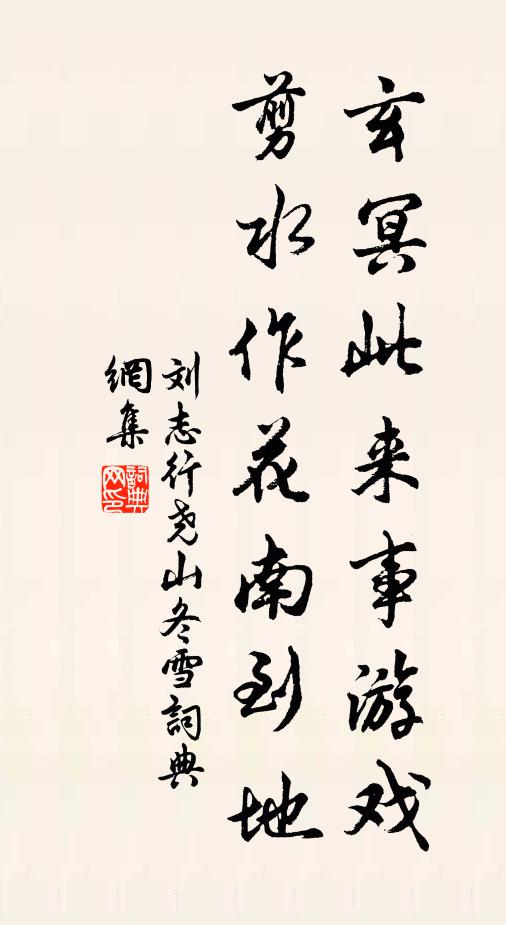 玄冥此来事游戏
剪水作花南到地
刘志行尧山冬雪詞典
網集
詞典
网印